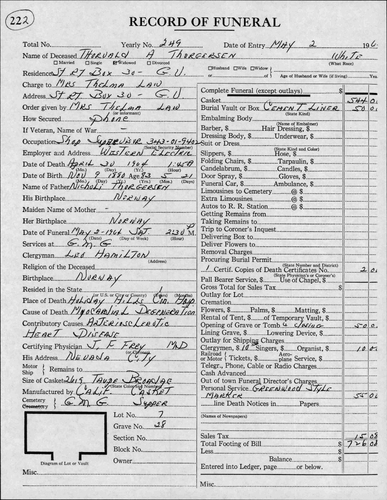 222
RECORD OF FUNERAL
Total No. Yearly No. 249 Date of Entry MAY 2 196
Name of Deceased THORVALD A THORGERSEN WHITE
Married Single Widowed Divorced Husband Wife Widow (What Race)
Residence ST RT BOX 30 - G.V. Age of Husband or Wife (if living) Yrs.
Charge to MRS THELMA LAW
Address ST RT BOX 30 - G.V.
Order given by MRS THELMA LAW
(or informant)
How Secured Phone
If Veteran, Name of War
Occupation SHOP SUPERVISOR
(Social Security Number)
Employer and Address WESTERN ELECTRIC
Date of Death APRIL 30 1964
Date of Birth NOV 9 1880 83 5 21
Name of Father NICHOLI THORGERSEN
His Birthplace NORWAY
Maiden Name of Mother
Her Birthplace NORWAY
Date of Funeral MAY 2 - 1964 SAT 2:30 P
(Date) (Day of Week) (Hour)
Services at G.M.G
Clergyman LEE HAMILTON
Religion of the Deceased
Birthplace NORWAY
Resided in the State
Place of Death HOLIDAY HILLS
Cause of Death MYOCARDIAL DEGENERATION
Contributory Causes ARTERIOSCLEROTIC
HEART DISEASE
Certifying Physician J. F. FREY MD
His Address NEVADA CITY
Motor Ship Remains to
Size of Casket 2/69 TAUPE BROCADE
Manufactured by CALIF. CASKET
Cemetery
Crematory G.M.G UPPER
Lot No. 7
Grave No. 38
Section No.
Block No.
Owner
Diagram of Lot or Vault
Misc.
Complete Funeral (except outlays) $
Casket 544 01
Burial Vault or Box CEMENT LINER 50 01
(State Kind)
Embalming Body
(Name of Embalmer)
Barber, $ Hair Dressing, $
Dressing Body, $ Underwear, $
Suit or Dress
(State Kind and Color)
Slippers, $ Hose, $
Folding Chairs, $ Tarpaulin, $
Candelabrum, $ Candles, $
Door Spray, $ Gloves, $
Funeral Car, $ Ambulance, $
Limousines to Cemetery @ $
Extra Limousines @ $
Autos to R. R. Station @ $
Getting Remains from
Taking Remains to
Trip to Coroner's Inquest
Delivering Box to
Deliver Flowers to
Removal Charges
Procuring Burial Permit
(State Number and District)
1 Certif. Copies of Death Certificates No. 2 0
(State Physician's or Coroner's)
Pall Bearer Service, $ Use of Chapel, $
Gross Total for Sales Tax $
Outlay for Lot
Cremation
Flowers, $ Palms, $ Matting, $
Rental of Tent, $ of Temporary Vault, $
Opening of Grave or Tomb 50 0
Lining Grave, $ Lowering Device, $
Outlay for Shipping Charges
Clergyman, $ 10 Singers, $ Organist, $ 10 0
Railroad or Motor Tickets, $ Aeroplane Service, $
Telegr., Phone, Cable or Radio Charges
Cash Advanced
Out of town Funeral Director's Charges
Personal Service, GREENWOOD STYLE
MARKER 55 0
line Death Notices in Papers
(Names of Newspapers)
Sales Tax 15 08
Total Footing of Bill $ 726 08
Less $
Balance $
Entered into Ledger, page or below.
Misc.